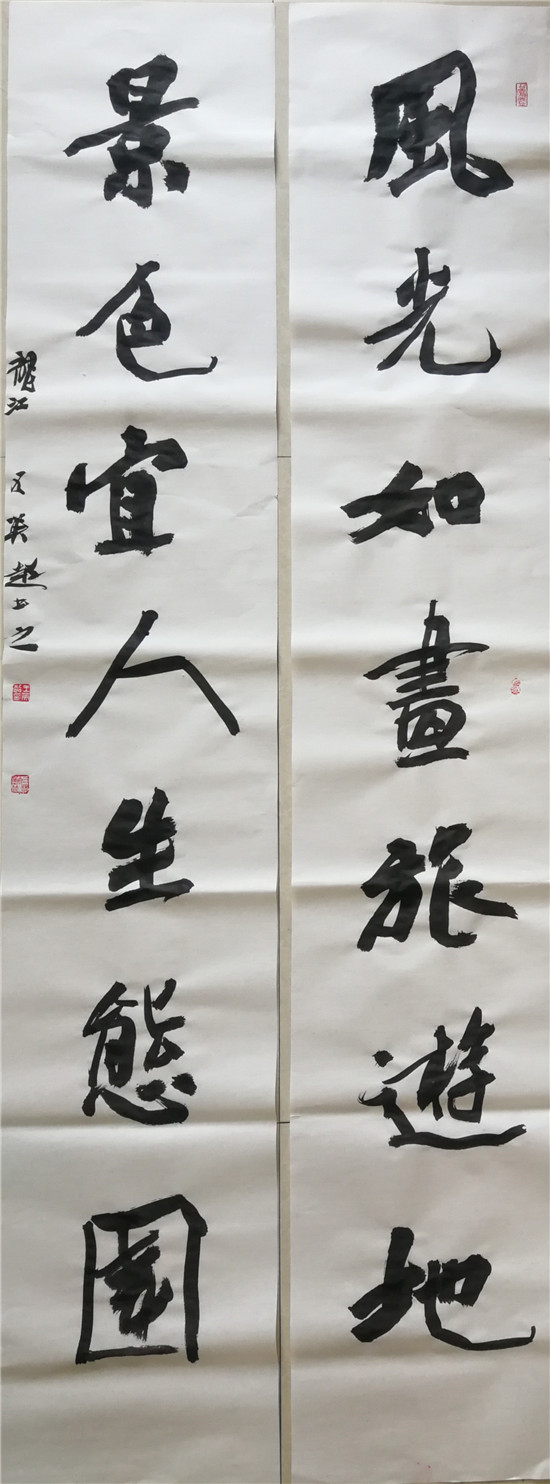 風光如畫旅遊地
景色宜人生態園
江 英趙书之